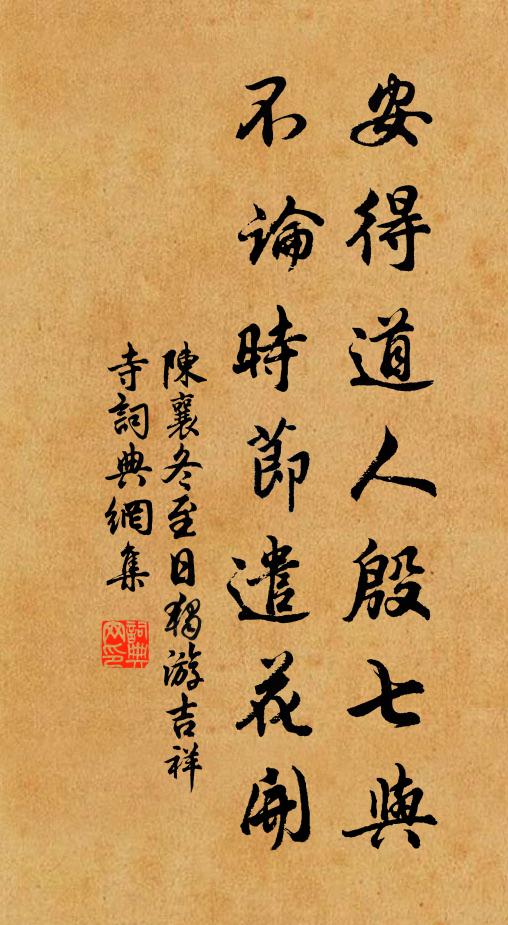 安得道人殷七與
不論時節遣花開
陳襄冬至日獨游吉祥
寺詞典網集
詞典
网印